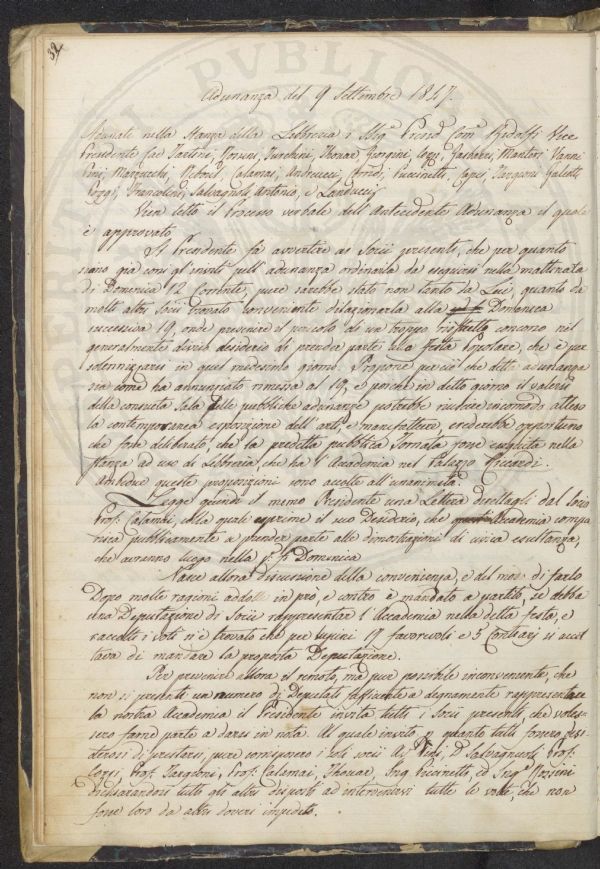 32
Adunanza del 9 Settembre 1847.
Adunati nella Stanza della Libreria i Sigri Presid. Com. Ridolfi Vice
Presidente Tartini, Thouar, Gasbarri, Mantori Vanni
Marzucchi, Calamai, Andreucci, Corridi, Puccinotti, Targioni
Poggi, Francolini, Salvagnoli, Antonio, e Landucci
Vien letto il Processo verbale dell'Antecedente Adunanza il quale
è approvato
Il Presidente fà avvertire ai Socii presenti, che per quanto
siano già corsi gl'inviti sull'adunanza ordinaria da eseguirsi nella mattinata
di Domenica 12 Corrente, pure sarebbe stato non tanto da Lui, quanto da
molti altri Socii trovato conveniente dilazionarla alla Domenica
successiva 19, onde prevenire il pericolo di un troppo concorso nel
generalmente diviso desiderio di prender parte alla festa Popolare, che è per
solennizzarsi in quel medesimo giorno. Propone perciò che detta adunanza
sia come ha annunziato rimessa al 19, e poiché in detto giorno il valersi
della consueta Sala delle pubbliche adunanze potrebbe riuscire incomodo atteso
la contemporanea esposizione dell'arti, e manifatture, crederebbe opportuno
che fosse deliberato, che la predetta pubblica Tornata fosse eseguita nella
Stanza ad uso di Libreria, che ha l'Accademia nel Palazzo Riccardi.
Ambedue queste proposizioni sono accolte all'unanimità.
Legge quindi il memo Presidente una Lettera direttagli dal Socio
Prof. Calamai, colla quale esprime il suo Desiderio, che Accademia compa
risca pubblicamente a prender parte alle dimostrazioni di civica esultanza,
che avranno luogo nella pa fa Domenica
Nasce allora discussione della convenienza, e del modo di farlo
Dopo molte ragioni addotte in pro, e contro è mandato a partito, se debba
una Deputazione di Socii rappresentar l'Accademia nella detta festa, e
raccolti i voti si è trovato che per lupini 19 favorevoli e 5 Contrarj si accet
tava di mandare la proposta Deputazione.
Per prevenire allora il remoto, ma pur possibile inconveniente, che
non si presenti un numero di Deputati sufficiente a degnamente rappresentare
la nostra Accademia il Presidente invita tutti i Socii presenti, che voles
sero farne parte a darsi in nota. Al quale invito, e quanto tutti fossero desi
derosi di prestarsi, pure corrisposero i soli socii Salvagnoli Prof.
Prof. Targioni, Prof. Calamai, Thouar, Ing. ed Ing.
dichiarandosi tutti gli altri disposti ad intervenirvi tutte le volte, che non
fosse loro da altri doveri impedito.